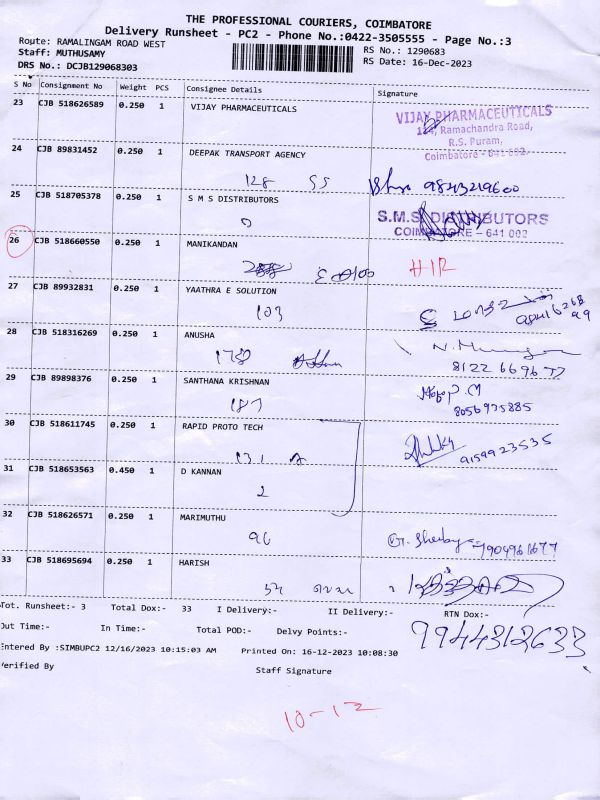 THE PROFESSIONAL COURIERS, COIMBATORE
Delivery Runsheet - PC2 - Phone No.:0422-3505555 - Page No.:3
Route: RAMALINGAM ROAD WEST
RS No.: 1290683
Staff: MUTHUSAMY
RS Date: 16-Dec-2023
DRS No.: DCJB129068303
S No Consignment No Weight PCS Consignee Details Signature
23 CJB 518626589 0.250 1 VIJAY PHARMACEUTICALS
VIJAY PHARMACEUTICALS
Ramachandra Road,
R.S. Puram,
Coimbatore - 641 002.
24 CJB 89831452 0.250 1 DEEPAK TRANSPORT AGENCY
128 SS 9843219600
25 CJB 518705378 0.250 1 S M S DISTRIBUTORS
S.M.S. DISTRIBUTORS
COIMBATORE - 641 002
26 CJB 518660550 0.250 1 MANIKANDAN
27 CJB 89932831 0.250 1 YAATHRA E SOLUTION
103
28 CJB 518316269 0.250 1 ANUSHA
8122 669677
29 CJB 89898376 0.250 1 SANTHANA KRISHNAN
187 8056975885
30 CJB 518611745 0.250 1 RAPID PROTO TECH
131 9159923535
31 CJB 518653563 0.450 1 D KANNAN
2
32 CJB 518626571 0.250 1 MARIMUTHU
96 7904961677
33 CJB 518695694 0.250 1 HARISH
Tot. Runsheet:- 3 Total Dox:- 33 I Delivery:- II Delivery:- RTN Dox:-
Out Time:- In Time:- Total POD:- Delvy Points:-
9944312633
Entered By :SIMBUPC2 12/16/2023 10:15:03 AM Printed On: 16-12-2023 10:08:30
Verified By Staff Signature
10-12